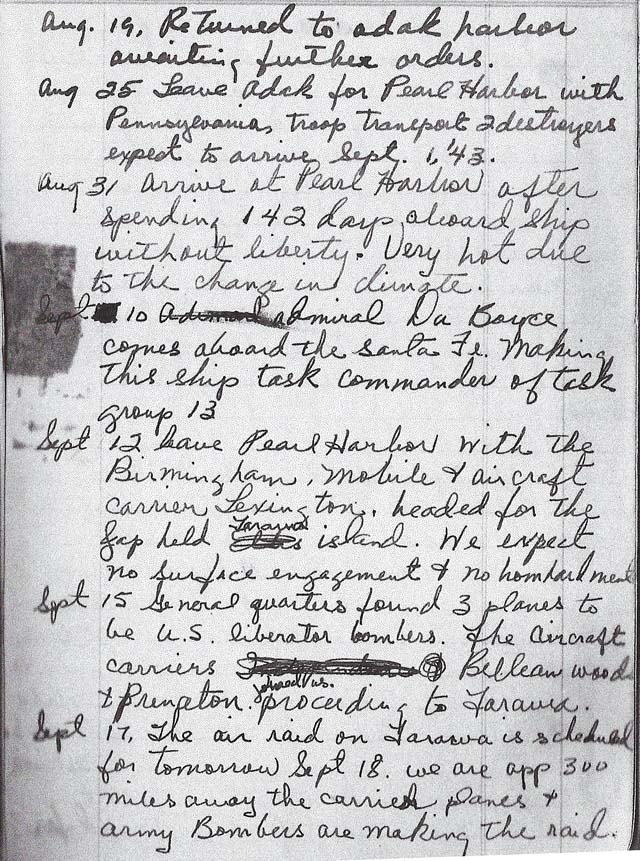 Aug. 19, Returned to adak harbor
awaiting further orders.
Aug 25 Leave Adak for Pearl Harbor with
Pennsylvania, troop transport 2 destroyers
expect to arrive Sept. 1, '43.
Aug 31 Arrive at Pearl Harbor after
spending 142 days aboard ship
without liberty. Very hot due
to the change in climate.
Sept 10 admiral Du Boyce
comes aboard the Santa Fe. Making
this ship task commander of task
group 13
Sept 12 leave Pearl Harbor with the
Birmingham, Mobile & aircraft
carrier Lexington, headed for the
Jap held Tarawa island. We expect
no surface engagement & no bombardment
Sept 15 General quarters found 3 planes to
be U.S. liberator bombers. The aircraft
carriers Belleau woods
& Princeton joined us. proceeding to Tarawa.
Sept 17, The air raid on Tarawa is scheduled
for tomorrow Sept 18. we are app 300
miles away the carrier planes &
army Bombers are making the raid.